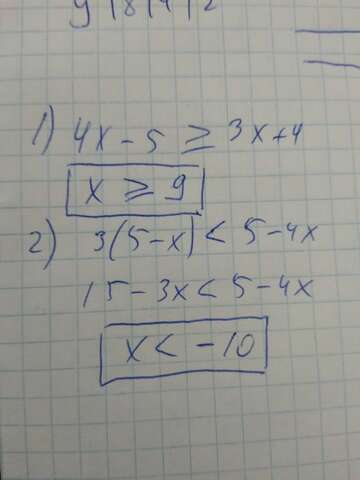 1) 4x - 5 ≥ 3x + 4
x ≥ 9
2) 3(5 - x) < 5 - 4x
15 - 3x < 5 - 4x
x < -10